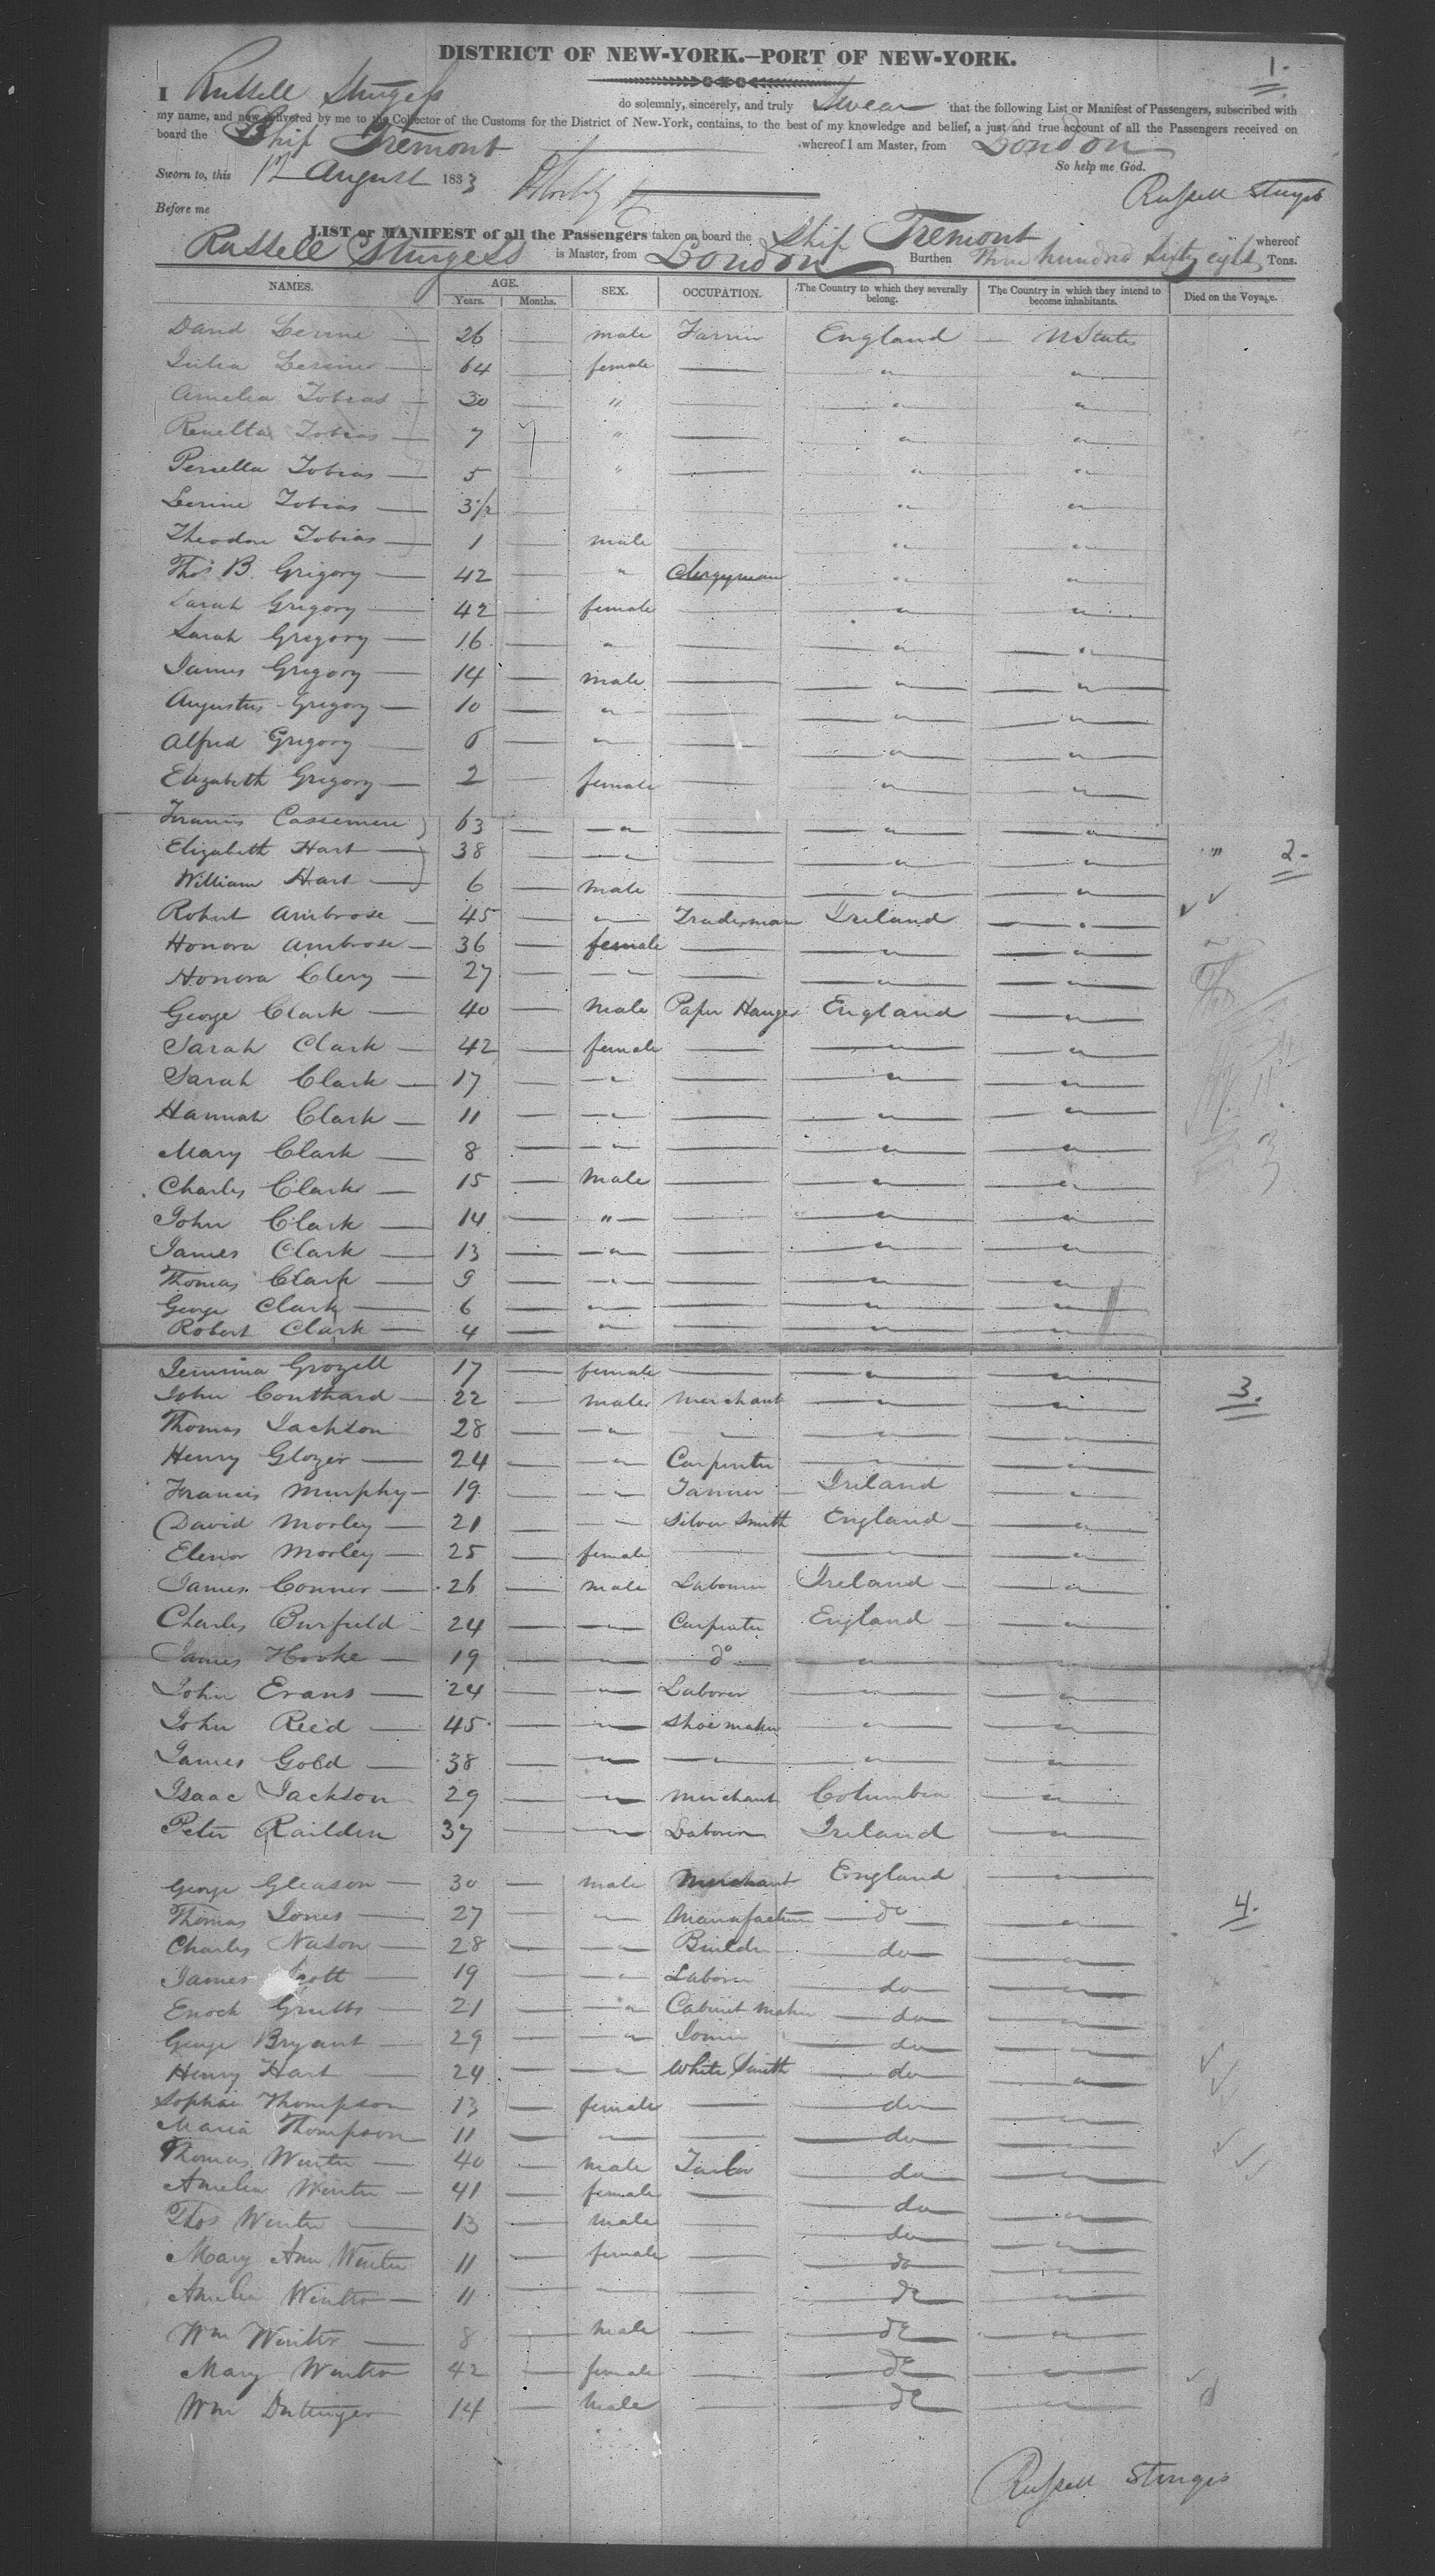 DISTRICT OF NEW-YORK.—PORT OF NEW-YORK.
1.
I Russell Sturgess do solemnly, sincerely, and truly Swear that the following List or Manifest of Passengers, subscribed with
my name, and now delivered by me to the Collector of the Customs for the District of New-York, contains, to the best of my knowledge and belief, a just and true account of all the Passengers received on
board the Ship Tremont whereof I am Master, from London
So help me God.
Sworn to, this 17 August 1833
Russell Sturgis
Before me
LIST or MANIFEST of all the Passengers taken on board the Ship Tremont whereof
Russell Sturgess is Master, from London Burthen Three hundred fifty eight Tons.
NAMES. AGE. Years. Months. SEX. OCCUPATION. The Country to which they severally belong. The Country in which they intend to become inhabitants. Died on the Voyage.
David Levine — 26 — male England — U States
Julia Levine — 64 — female — " "
Amelia Tobias — 30 — " — " "
Tobias — 7 — " — " "
Tobias — 5 — " — " "
Levine Tobias — 3 1/2 — " "
Theodore Tobias — 1 — male — " "
Thos B. Grigory — 42 — " Clergyman " "
Sarah Grigory — 42 — female — " "
Sarah Grigory — 16 — " — " "
James Grigory — 14 — male — " "
Augustus Grigory — 10 — " — " "
Alfred Grigory — 6 — " — " "
Elizabeth Grigory — 2 — female — " "
Francis 63 — " — " "
Elizabeth Hart — 38 — " — " " 2.
William Hart — 6 — male — " "
Robert Ambrose — 45 — " Tradesman Ireland "
Honora Ambrose — 36 — female — " "
Honora Clery — 27 — " — " "
George Clark — 40 — male Paper Hanger England "
Sarah Clark — 42 — female — " "
Sarah Clark — 17 — " — " "
Hannah Clark — 11 — " — " "
Mary Clark — 8 — " — " "
Charles Clark — 15 — Male — " "
John Clark — 14 — " — " "
James Clark — 13 — " — " "
Thomas Clark — 9 — " — " "
George Clark — 6 — " — " "
Robert Clark — 4 — " — " "
Jemima Grozell 17 — female — " "
John Couthard — 22 — male Merchant " " 3.
Thomas Jackson 28 — " " " "
Henry Glozer — 24 — " Carpenter " "
Francis Murphy — 19 — " Tanner Ireland "
David Morley — 21 — " Silver Smith England "
Elenor Morley — 25 — female — " "
James Conner — 26 — male Labourer Ireland "
Charles Burfield 24 — " Carpenter England "
James Hooke — 19 — " do " "
John Evans — 24 — " Laborer " "
John Reed — 45 — " Shoe maker " "
James Gold — 38 — " " " "
Isaac Jackson 29 — " Merchant Columbia "
Peter Railden 37 — " Laborer Ireland "
George Gleason — 30 — male Merchant England "
Thomas Jones — 27 — " Manufacturer do " 4.
Charles Nason — 28 — " Builder do "
James Scott — 19 — " Laborer do "
Enoch Grubbs — 21 — " Cabinet Maker do "
George Bryant — 29 — " Joiner do "
Henry Hart — 24 — " White Smith do "
Sophia Thompson 13 — female — do "
Maria Thompson 11 — " — do "
Thomas Winter — 40 — male Tailor do "
Amelia Winter — 41 — female — do "
Thos Winter — 13 — male — do "
Mary Ann Winter 11 — female — do "
Amelia Winter — 11 — " — do "
Wm Winter — 8 — male — do "
Mary Winter 42 — female — do "
Wm 14 — Male — do "
Russell Sturgis